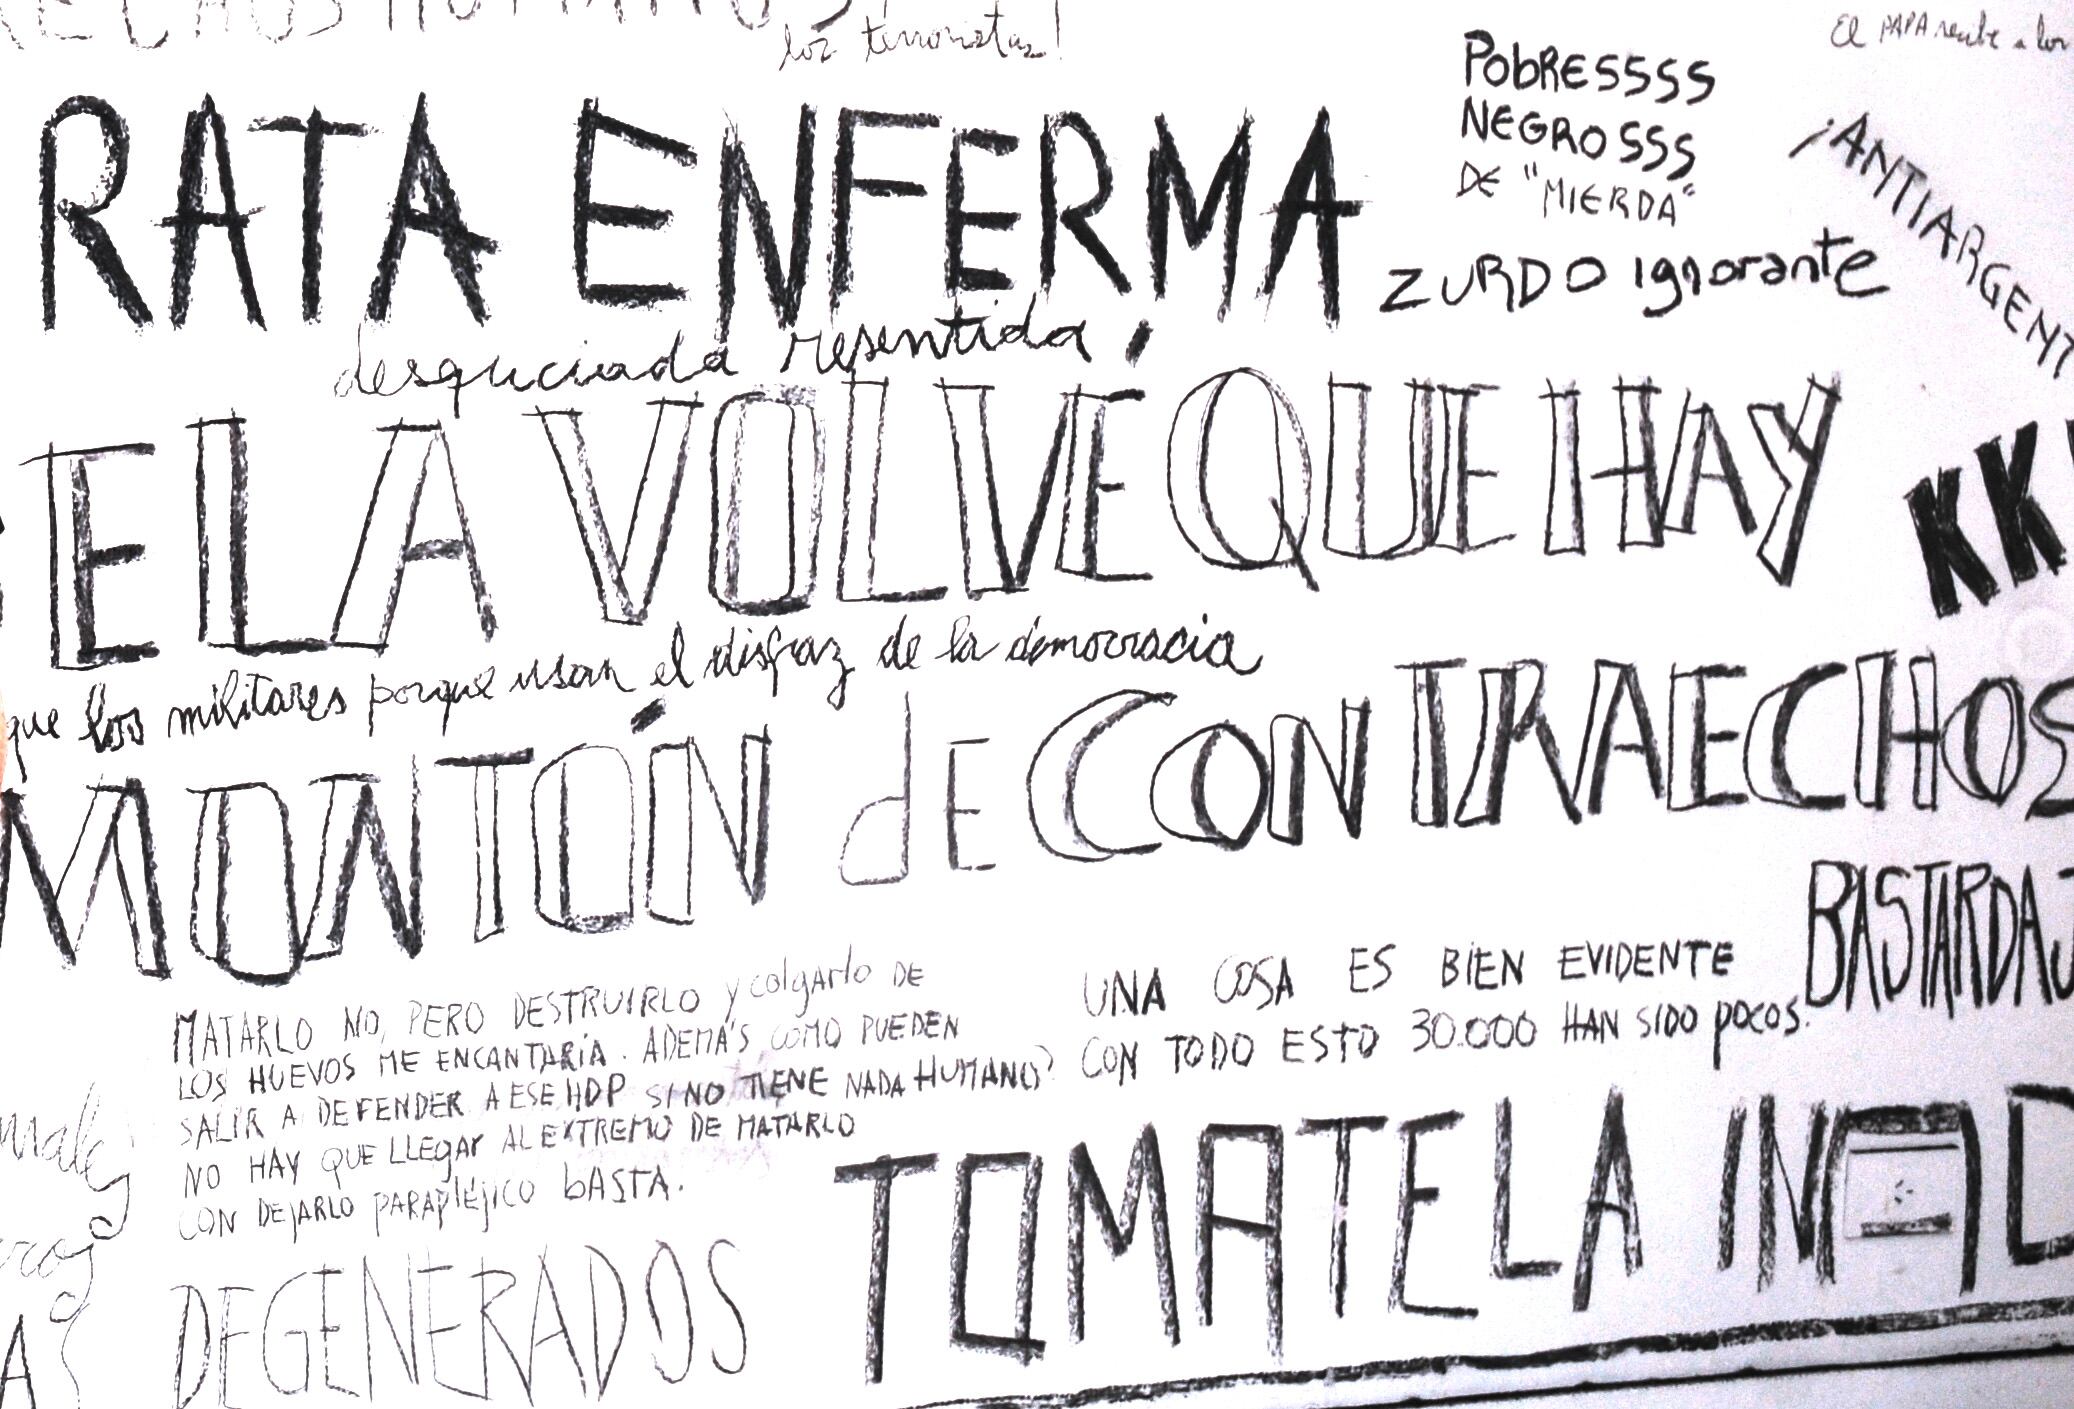 los terroristas!
El PAPA recibe a los
POBRESSSS
NEGROSSS
DE "MIERDA"
¡ANTIARGENT
RATA ENFERMA
ZURDO ignorante
desquiciada resentida
E LA VOLVÉ QUE HAY
KK
que los militares porque usan el disfraz de la democracia
MONTÓN dE CONTRAECHOS
BASTARDA
MATARLO NO, PERO DESTRUIRLO y colgarlo DE
LOS HUEVOS ME ENCANTARÍA. ADEMÁS COMO PUEDEN
SALIR A DEFENDER A ESE HDP SI NO TIENE NADA HUMANO?
NO HAY QUE LLEGAR AL EXTREMO DE MATARLO
CON DEJARLO PARAPLÉJICO BASTA.
UNA COSA ES BIEN EVIDENTE
CON TODO ESTO 30.000 HAN SIDO POCOS.
TOMATELA INAD
DEGENERADOS